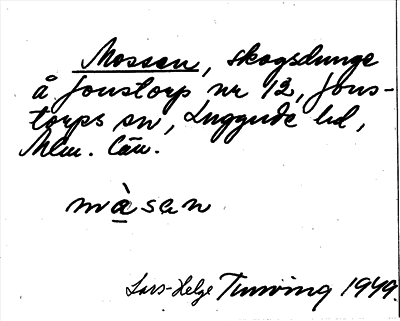 Mossen, skogsdunge
å Jonstorp nr 12, Jons-
torps sn, Luggude hd,
Mlm. län.
mà̱sen
Lars-Helge Tunving 1949.